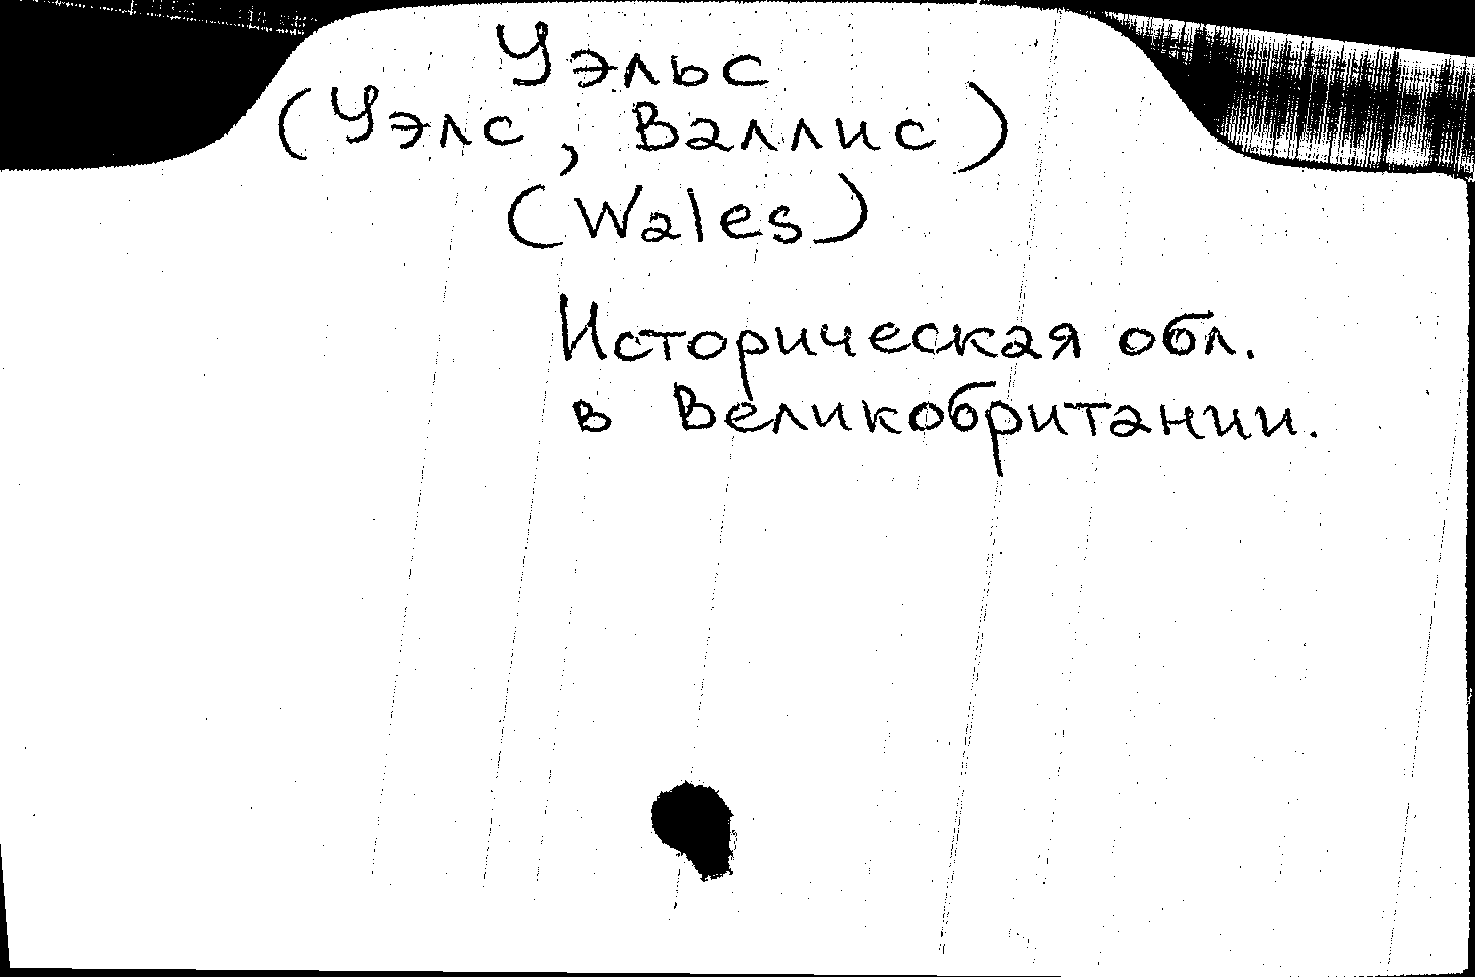 Уэльс
(Уэлс, Валлис)
(Wales)
Историческая обл.
в Великобритании.